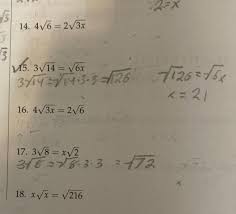 2=x
14. 4√6 = 2√3x
15. 3√14 = √6x
3√14 = √14·3·3 = √126 √126 = √6x
x = 21
16. 4√3x = 2√6
17. 3√8 = x√2
3√8 = √8·3·3 = √72
18. x√x = √216